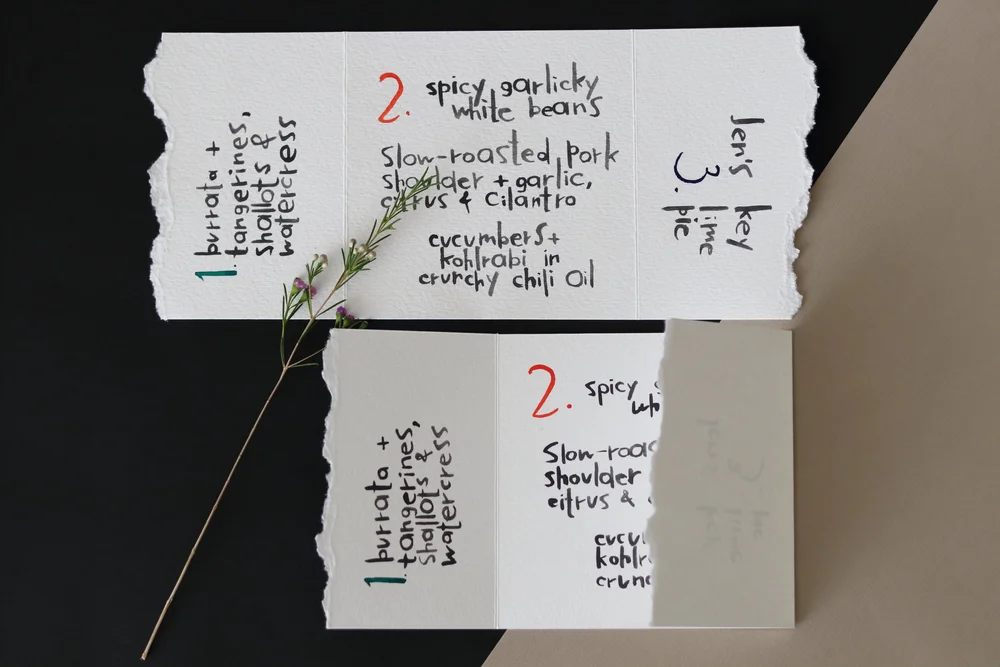 1. burrata +
tangerines,
shallots &
watercress
2. spicy garlicky
white beans
Slow-roasted Pork
shoulder + garlic,
citrus & Cilantro
cucumbers +
kohlrabi in
crunchy chili Oil
3. Jen's key
lime
pie
1. burrata +
tangerines,
shallots &
watercress
2. spicy
Slow-roas
shoulder
citrus &
cucu
kohlr
crunc